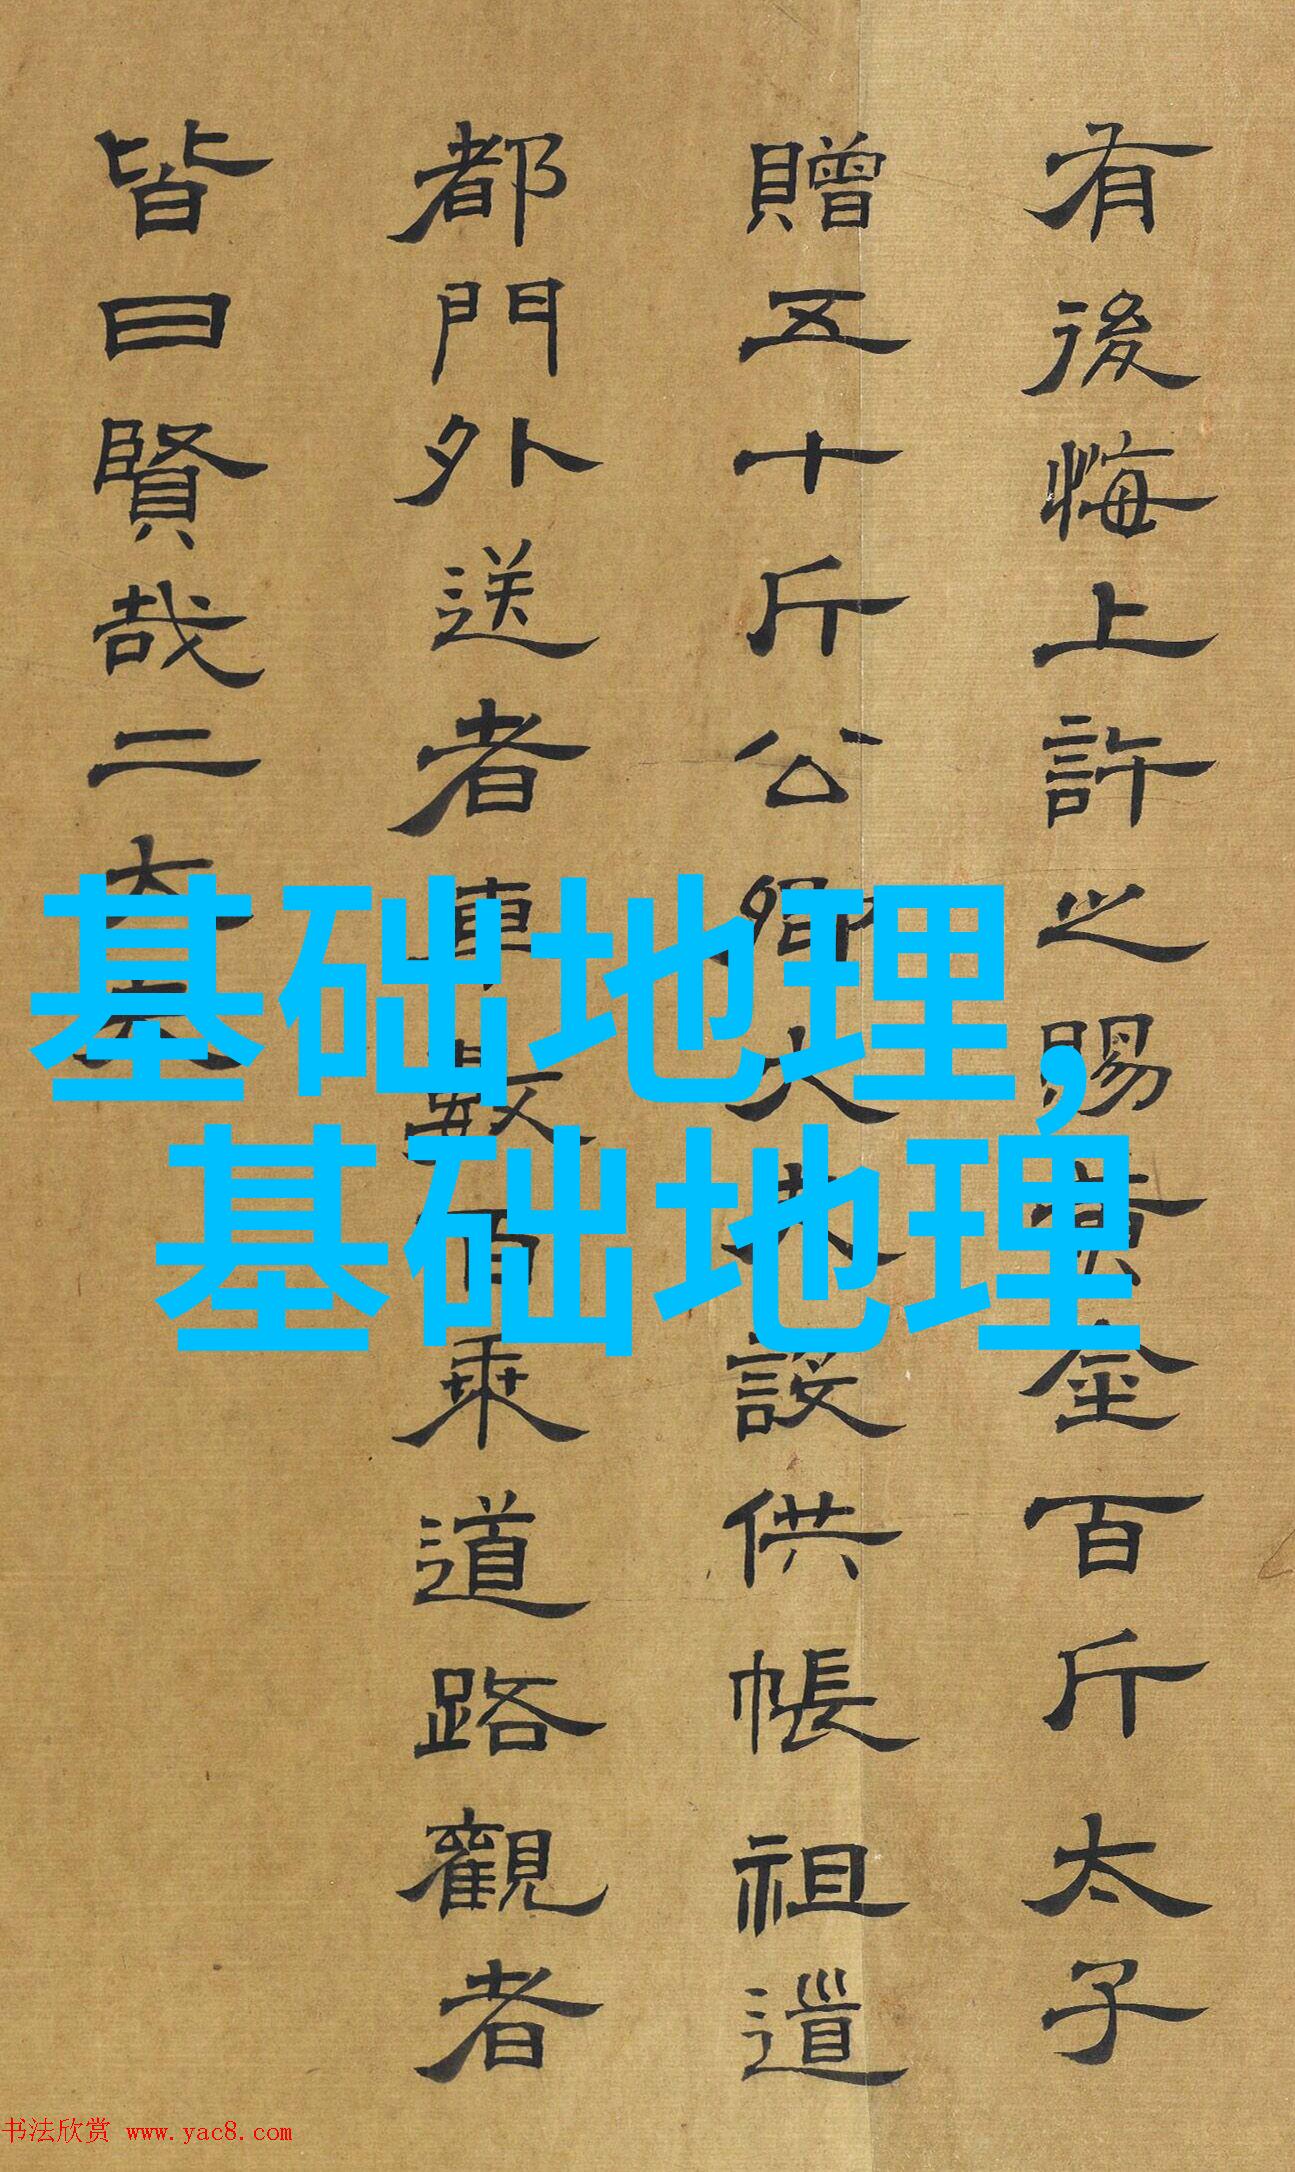 有後悔上許之賜黃金百斤太子
贈五十斤公卿大夫設供帳祖道
都門外送者車數百乘道路觀者
皆曰賢哉二大夫
基础地理,
基础地理
书法欣赏 www.yac8.com